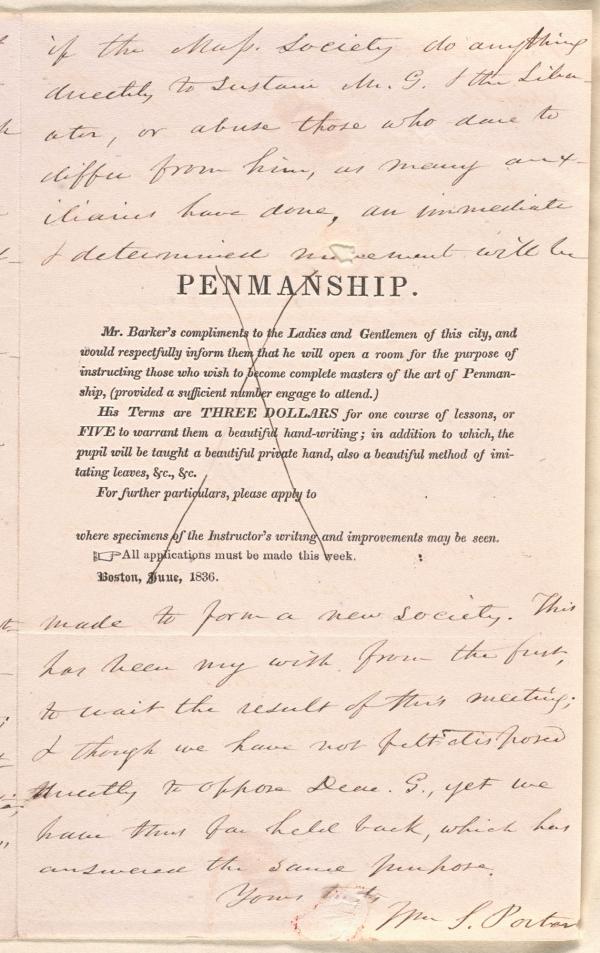 if the Mass. Society do anything
directly to sustain Mr. G. & the Libe-
rator, or abuse those who dare to
differ from him, as many aux-
iliaries have done, an immediate
& determined movement will be
PENMANSHIP.
Mr. Barker's compliments to the Ladies and Gentlemen of this city, and
would respectfully inform them that he will open a room for the purpose of
instructing those who wish to become complete masters of the art of Penman-
ship, (provided a sufficient number engage to attend.)
His Terms are THREE DOLLARS for one course of lessons, or
FIVE to warrant them a beautiful hand-writing; in addition to which, the
pupil will be taught a beautiful private hand, also a beautiful method of imi-
tating leaves, &c., &c.
For further particulars, please apply to
where specimens of the Instructor's writing and improvements may be seen.
☞All applications must be made this week.
Boston, June, 1836.
made to form a new society. This
has been my wish from the first,
to wait the result of this meeting;
& though we have not felt disposed
directly to oppose Deac. G., yet we
have thus far held back, which has
answered the same purpose.
Yours truly
Wm S. Porter